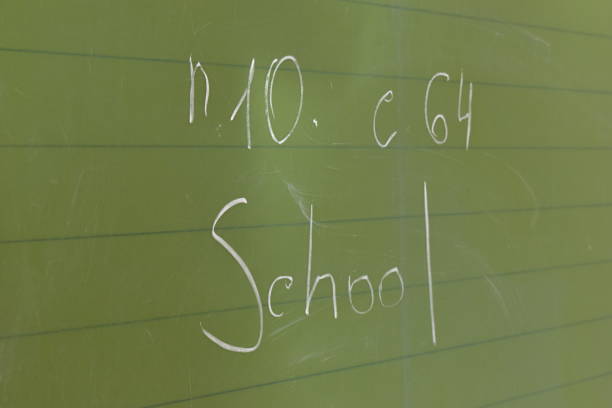 п.10. с 64
School